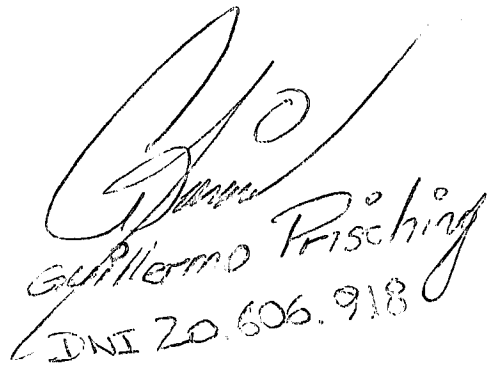 Guillermo Prisching
DNI 20.606.918